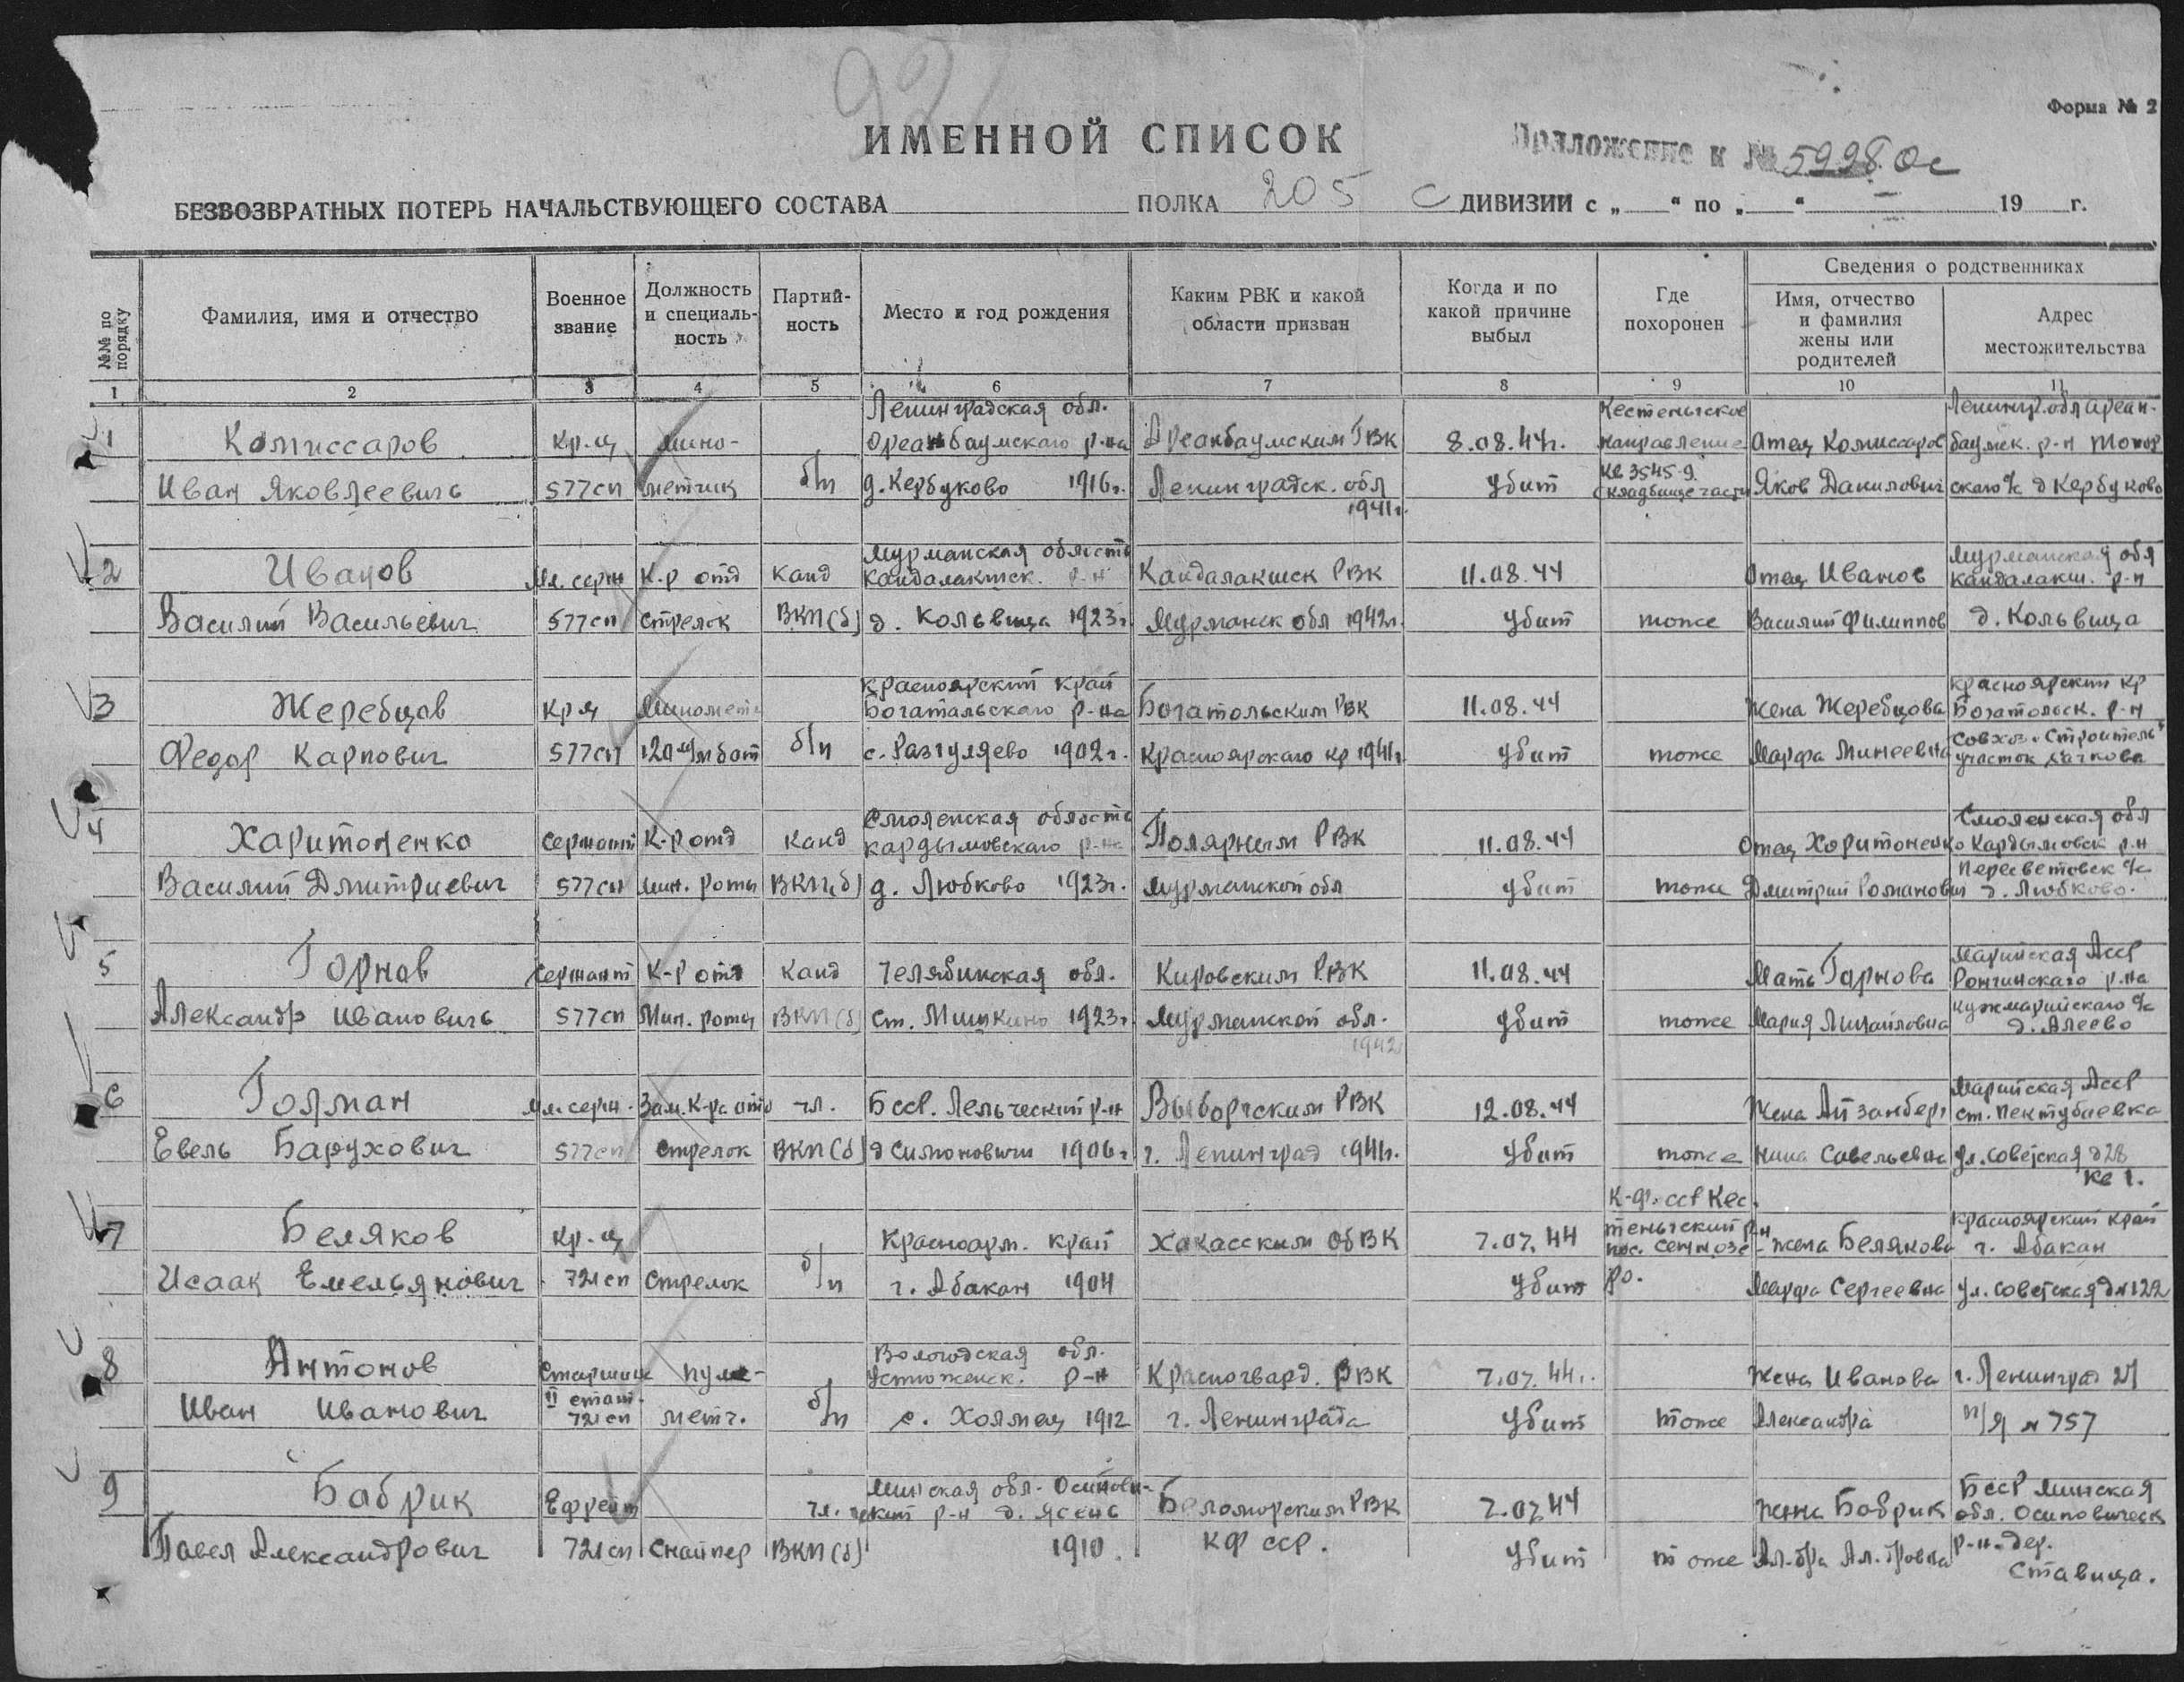 921
Форма № 2
ИМЕННОЙ СПИСОК
Приложение к № 5998 ос
БЕЗВОЗВРАТНЫХ ПОТЕРЬ НАЧАЛЬСТВУЮЩЕГО СОСТАВА ПОЛКА 205 С ДИВИЗИИ с „ “ по „ “ 19 г.
№№ по порядку
Фамилия, имя и отчество
Военное звание
Должность и специаль-ность
Партий-ность
Место и год рождения
Каким РВК и какой области призван
Когда и по какой причине выбыл
Где похоронен
Сведения о родственниках
Имя, отчество и фамилия жены или родителей
Адрес местожительства
1 2 3 4 5 6 7 8 9 10 11
Ленинградская обл. Кестеньгское Ленингр. обл Ореан-
1 Комиссаров Кр-ц мино- Ореанбаумского р-на Ореанбаумским ГВК 8.08.44г. направление Отец Комиссаров баумск. р-н
Иван Яковлеевичь 577сп метчик б/п д. Кербуково 1916г. Ленинградск. обл убит Кв 3545-9. Яков Данилович ского с/с д Кербуково
1941г. кладбище части
Мурманская область Мурманская обл
2 Иванов Мл. серж К-р отд Канд Кандалакшск. р-н Кандалакшск РВК 11.08.44 Отец Иванов Кандалакш. р-н
Василий Васильевич 577сп стрелок ВКП(б) д. Кольвица 1923г Мурманск обл 1942г. убит тоже Василий Филиппов д. Кольвица
Красноярский край Красноярский кр
3 Жеребцов Кр ц Миномет Богатольского р-на Богатольским РВК 11.08.44 Жена Жеребцова Богатольск. р-н
Федор Карпович 577сп 120 м/м бат б/п с. Разгуляево 1902г. Красноярского кр 1941г убит тоже Марфа Минеевна Совхоз „Строитель“
участок
Смоленская область Смоленская обл
4 Харитоненко Сержант К-р отд Канд Кардымовского р-на Полярным РВК 11.08.44 Отец Харитоненко Кардымовск р-н
Василий Дмитриевич 577сп мин. роты ВКП(б) д. Любково 1923г. Мурманской обл убит тоже Дмитрий Романович Пересветовск с/с
д. Любково.
5 Горнов Сержант К-р отд Канд Челябинская обл. Кировским РВК 11.08.44 Мать Горнова Марийская Асср
Ронгинского р-на
Александр Ивановичь 577сп Мин. роты ВКП(б) ст. Мишкино 1923г Мурманской обл. убит тоже Мария Михайловна Кужмарийского с/с
1942 д. Алеево
6 Голман Мл. серж. Зам. К-ра отд чл. Бсср. Лельческий р-н Выборгским РВК 12.08.44 Жена Айзанберг Марийская Асср
ст. Пектубаевка
Евель Барухович 577сп стрелок ВКП(б) д Симоновичи 1906г г. Ленинград 1941г. убит тоже Нина Савельевна ул. Советская д 28
кв 1.
К-ф. сср Кес-
7 Беляков Кр-ц Красноярм. край Хакасским ОБВК 7.07.44 теньгский р-н Жена Белякова Красноярский край
пос. Сеннозе- г. Абакан
Исаак Емельянович 721сп Стрелок б/п г. Абакан 1904 убит ро. Марфа Сергеевна ул. Советская д н 122
Вологодская обл.
8 Антонов Старшина пуле- Устюженск. р-н Красногвард. РВК 7.07.44г. Жена Иванова г. Ленинград 27
Иван Иванович II стат. 721сп метч. б/п с. Холмец 1912 г. Ленинграда убит тоже Александра п/я н 757
Минская обл. Осипови-
9 Бабрик Ефрейт чл. чский р-н д. Ясень Беломорским РВК 7.07.44 Жена Бобрик Бсср Минская
обл. Осиповическ
Павел Александрович 721сп Снайпер ВКП(б) 1910. КФ сср. убит тоже Ал-дра Ал-дровна р-н. дер.
Ставища.